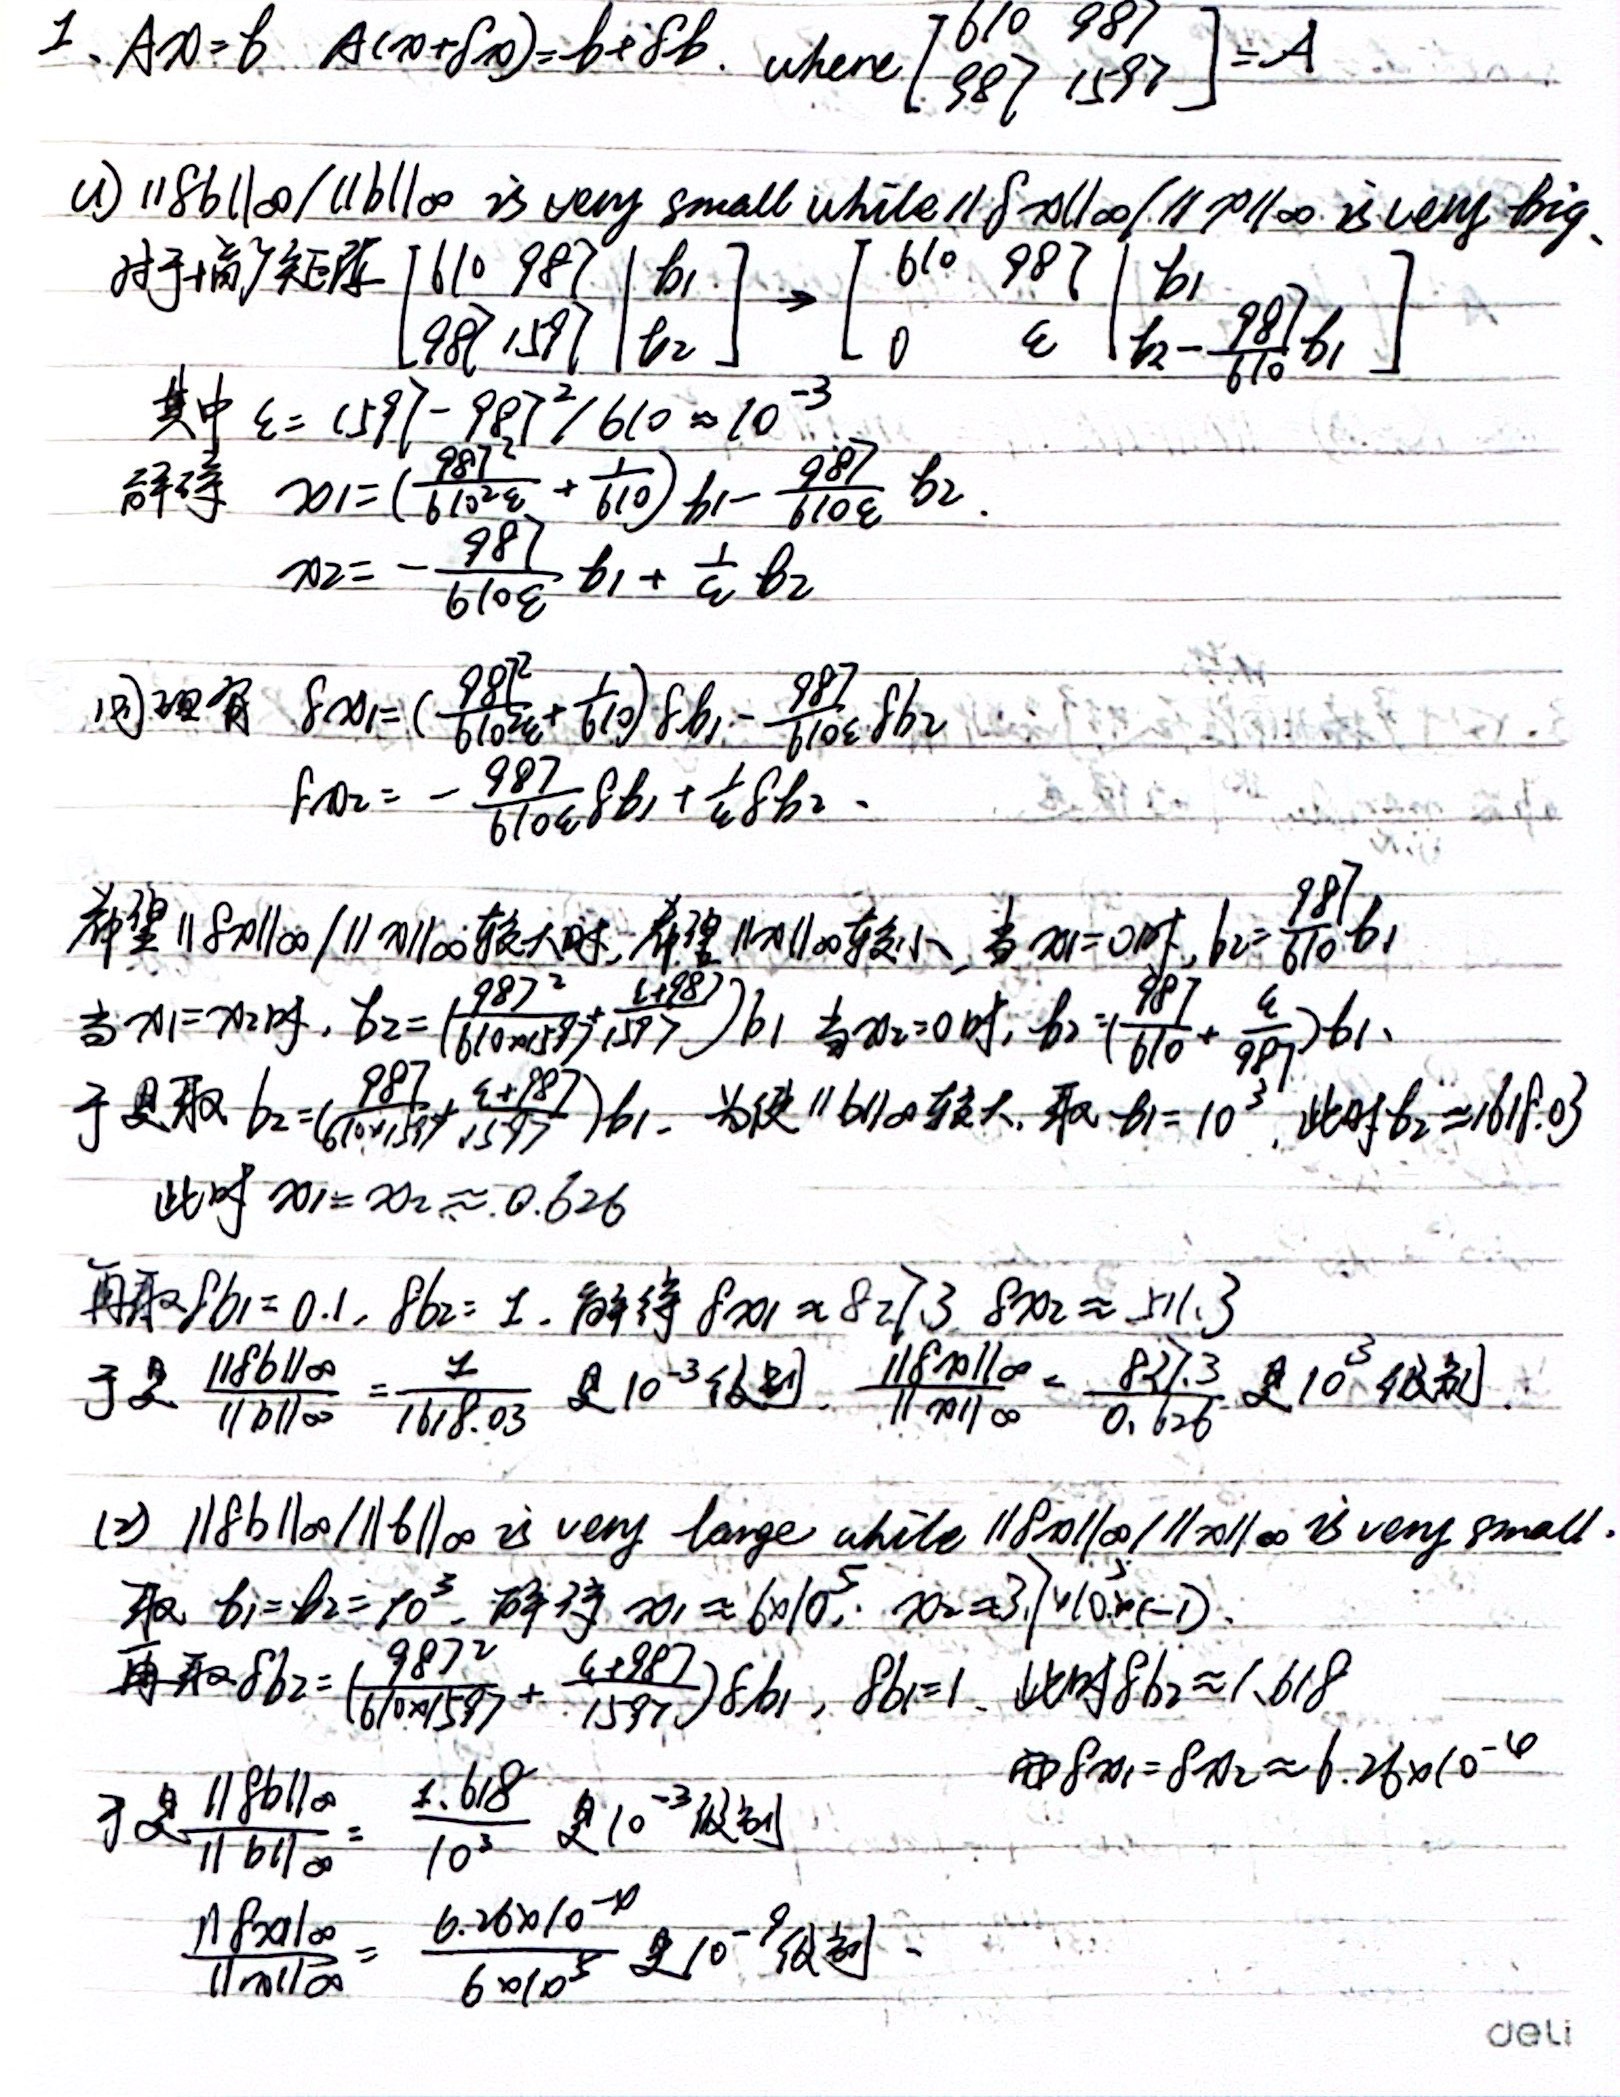 1、Ax=b A(x+δx)=b+δb. where [610 987; 987 1597]=A
(1) ||δb||∞/||b||∞ is very small while ||δx||∞/||x||∞ is very big、
对于增广矩阵 [610 987 | b1; 987 1597 | b2] → [610 987 | b1; 0 ε | b2-987/610 b1]
其中 ε=1597-987²/610≈10⁻³
解得 x1=(987²/610²ε+1/610)b1-987/610ε b2.
x2=-987/610ε b1+1/ε b2
同理有 δx1=(987²/610²ε+1/610)δb1-987/610ε δb2
δx2=-987/610ε δb1+1/ε δb2.
希望||δx||∞/||x||∞较大时,希望||x||∞较小、当x1=0时,b2=987/610 b1
当x1=x2时,b2=(987²/610×1597+ε+987/1597)b1 当x2=0时,b2=(987/610+ε/987)b1、
于是取 b2=(987/610×1597+ε+987/1597)b1. 为使||b||∞较大,取 b1=10³,此时b2≈1618.03
此时 x1=x2≈0.626
再取δb1=0.1, δb2=1. 解得 δx1≈827.3 δx2≈511.3
于是 ||δb||∞/||b||∞=1/1618.03 是10⁻³级别. ||δx||∞/||x||∞=827.3/0.626 是10³级别.
(2) ||δb||∞/||b||∞ is very large while ||δx||∞/||x||∞ is very small.
取 b1=b2=10³. 解得 x1≈6×10⁵. x2≈3.7×10⁵×(-1).
再取δb2=(987²/610×1597+ε+987/1597)δb1, δb1=1. 此时δb2≈1.618
δx1=δx2≈6.26×10⁻⁴
于是||δb||∞/||b||∞=1.618/10³ 是10⁻³级别
||δx||∞/||x||∞=6.26×10⁻⁴/6×10⁵ 是10⁻⁹级别.
deli